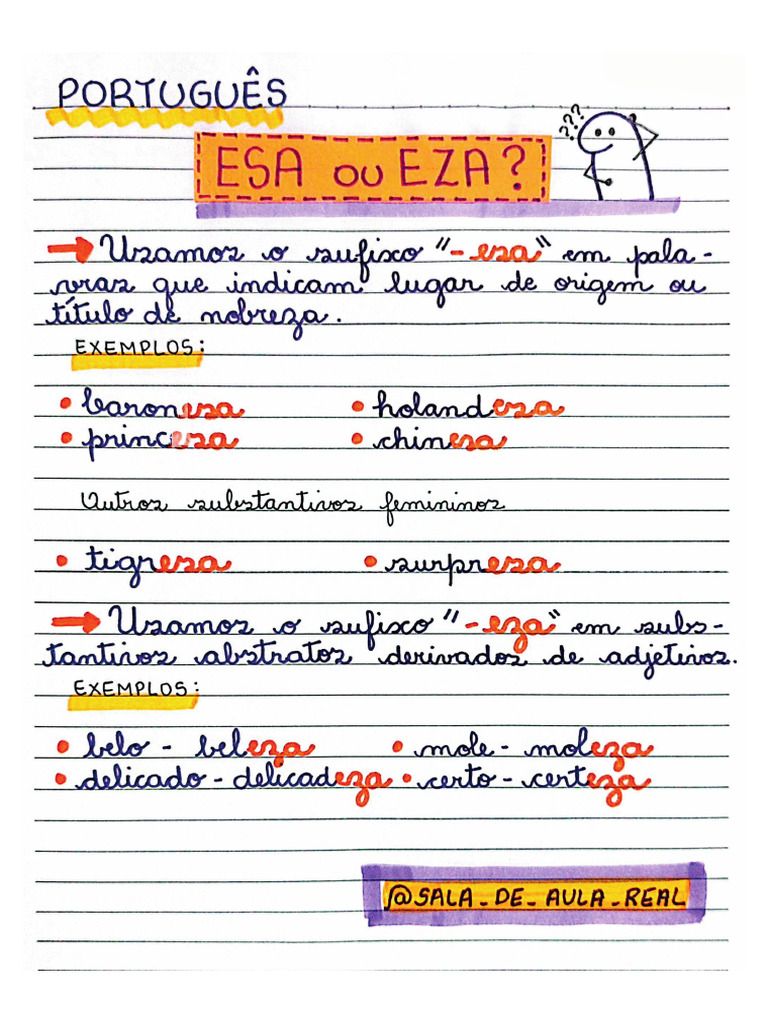 PORTUGUÊS
ESA OU EZA?
???
→ Usamos o sufixo "-esa" em pala-
vras que indicam lugar de origem ou
título de nobreza.
EXEMPLOS:
• baronesa • holandesa
• princesa • chinesa
Outros substantivos femininos
• tigresa • surpresa
→ Usamos o sufixo "-eza" em subs-
tantivos abstratos derivados de adjetivos.
EXEMPLOS:
• belo - beleza • mole - moleza
• delicado - delicadeza • certo - certeza
@SALA_DE_AULA_REAL